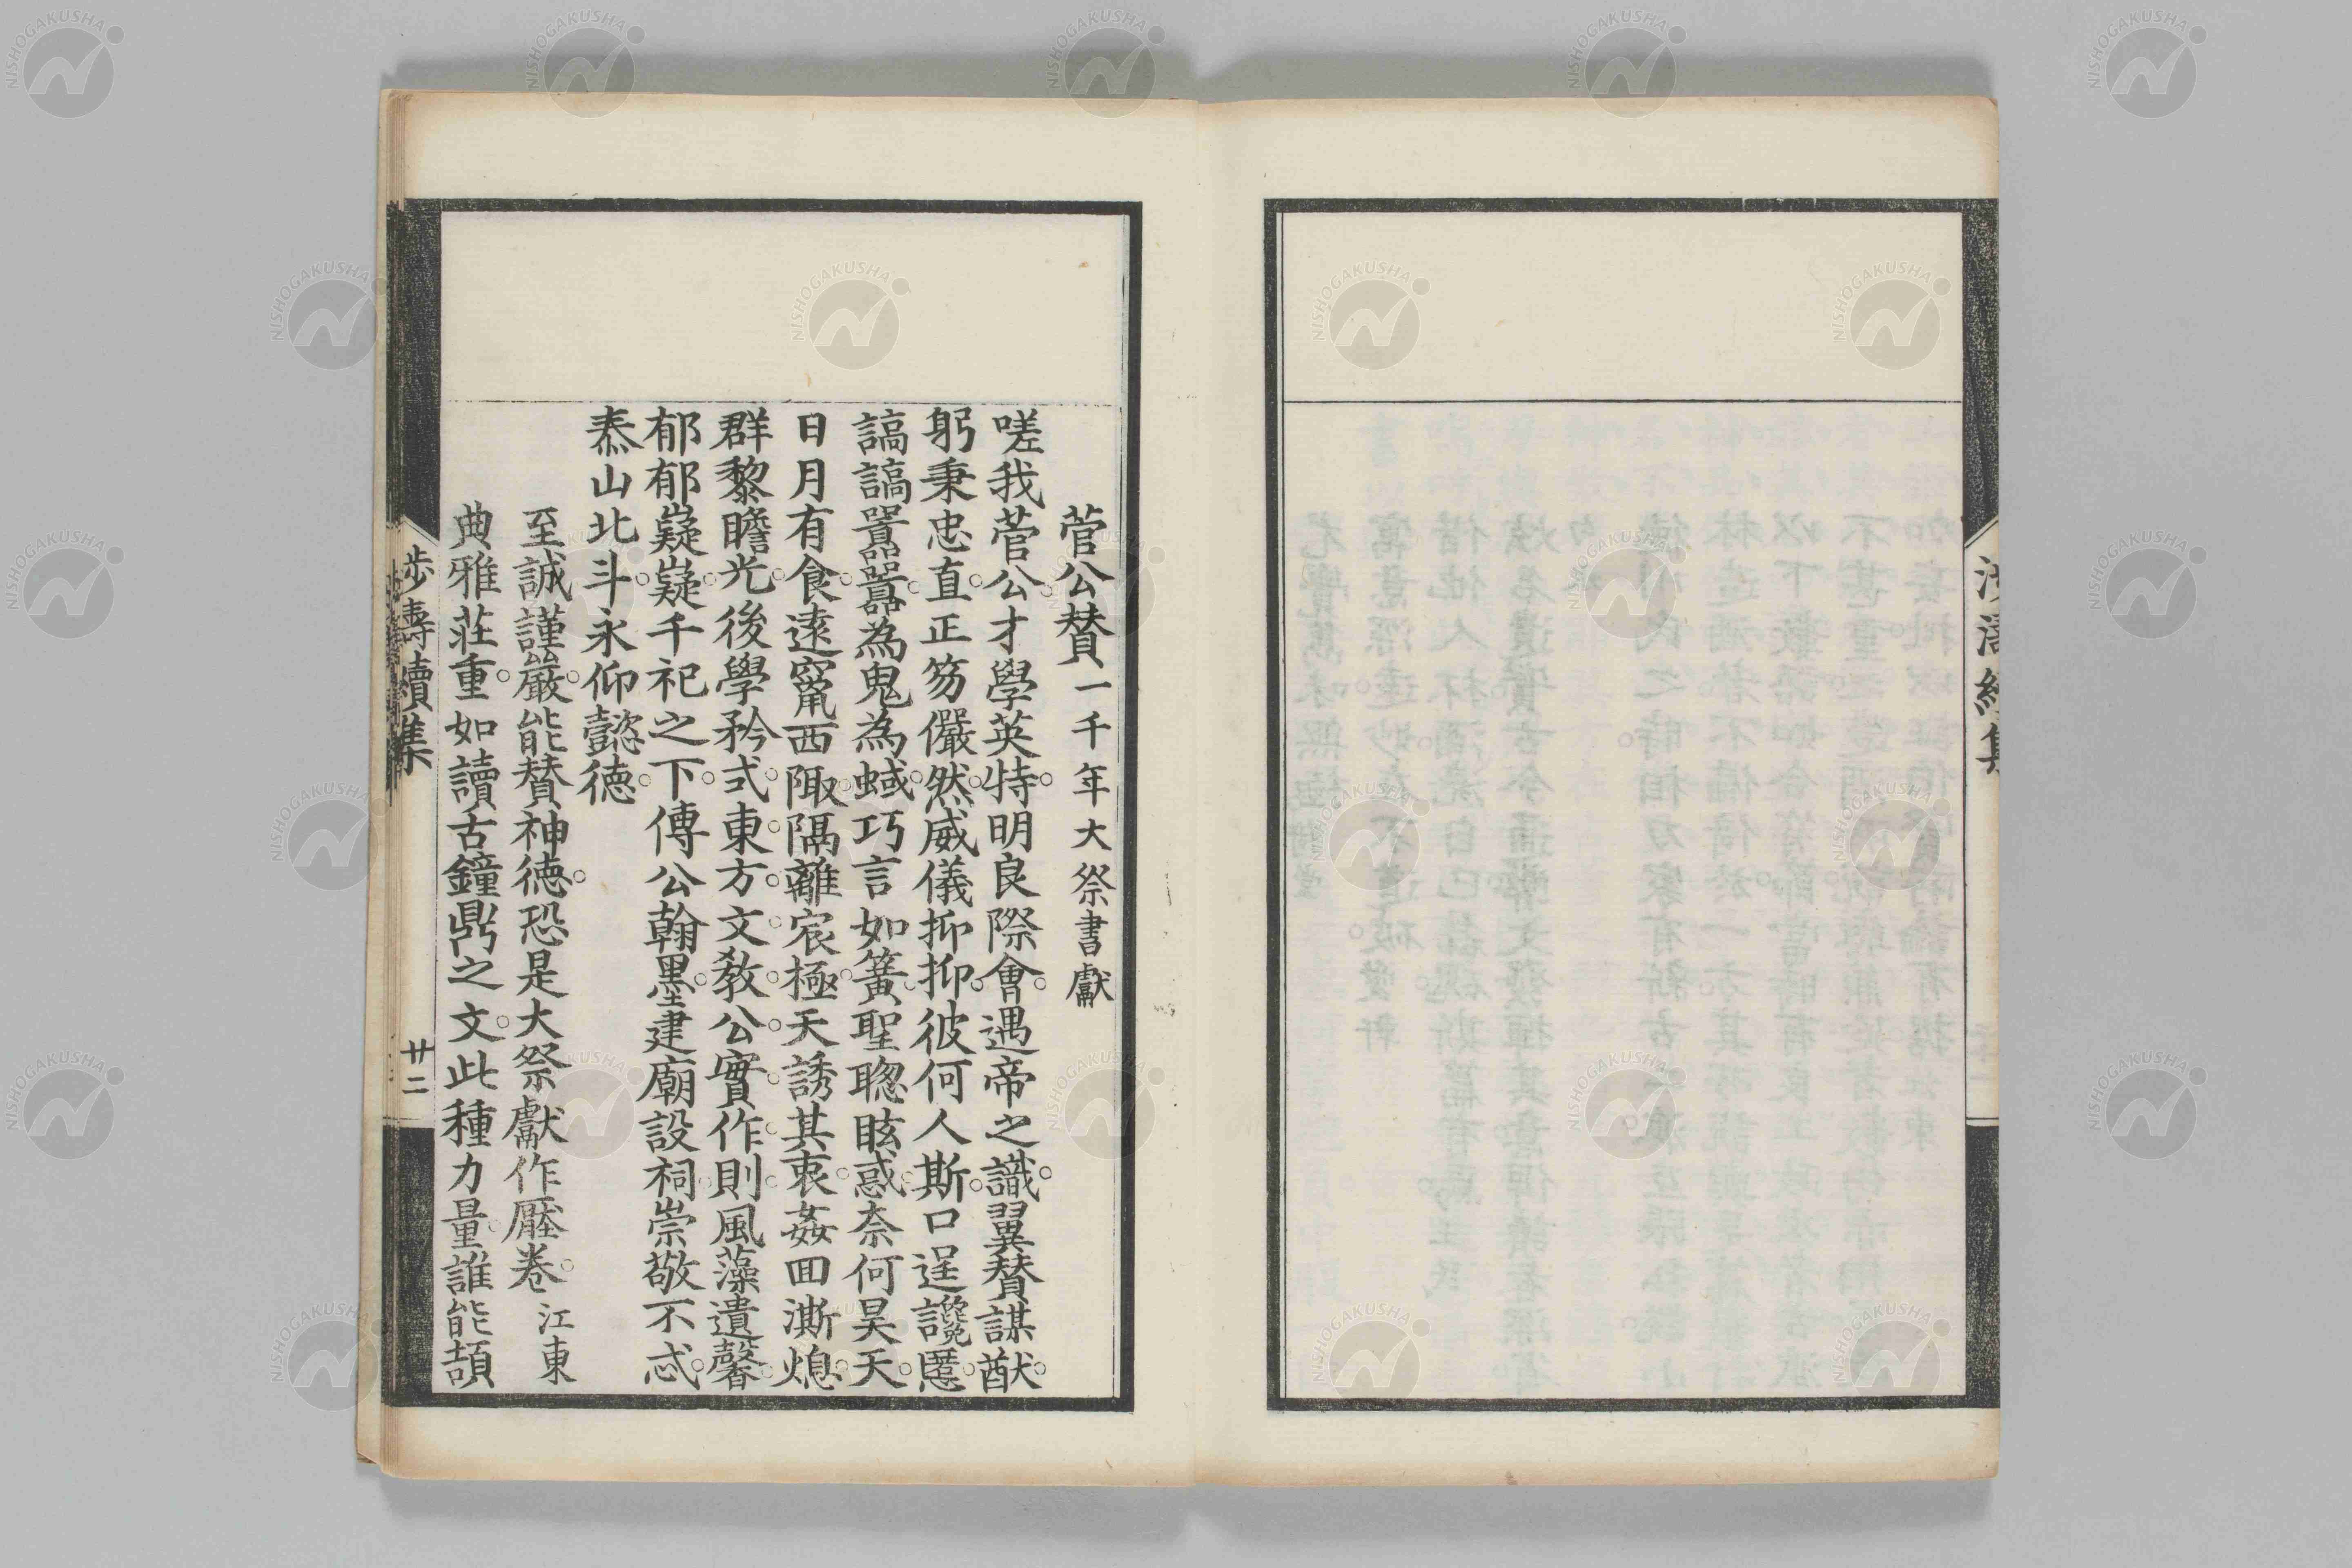 菅公賛一千年大祭書獻
嗟我菅公才學英特明良際會遇帝之識翼賛謀猷
躬秉忠直正笏儼然威儀抑抑彼何人斯口逞讒慝
謞謞囂囂為鬼為蜮巧言如簧聖聰眩惑奈何昊天
日月有食遠竄西陬隔離宸極天誘其衷姦回澌熄
群黎瞻光後學矜式東方文教公實作則風藻遺馨
郁郁嶷嶷千祀之下傳公翰墨建廟設祠崇敬不忒
泰山北斗永仰懿德
至誠謹嚴能賛神德恐是大祭獻作壓卷 江東
典雅莊重如讀古鐘鼎之文此種力量誰能頡
步濤續集
廿二
NISHOGAKUSHA